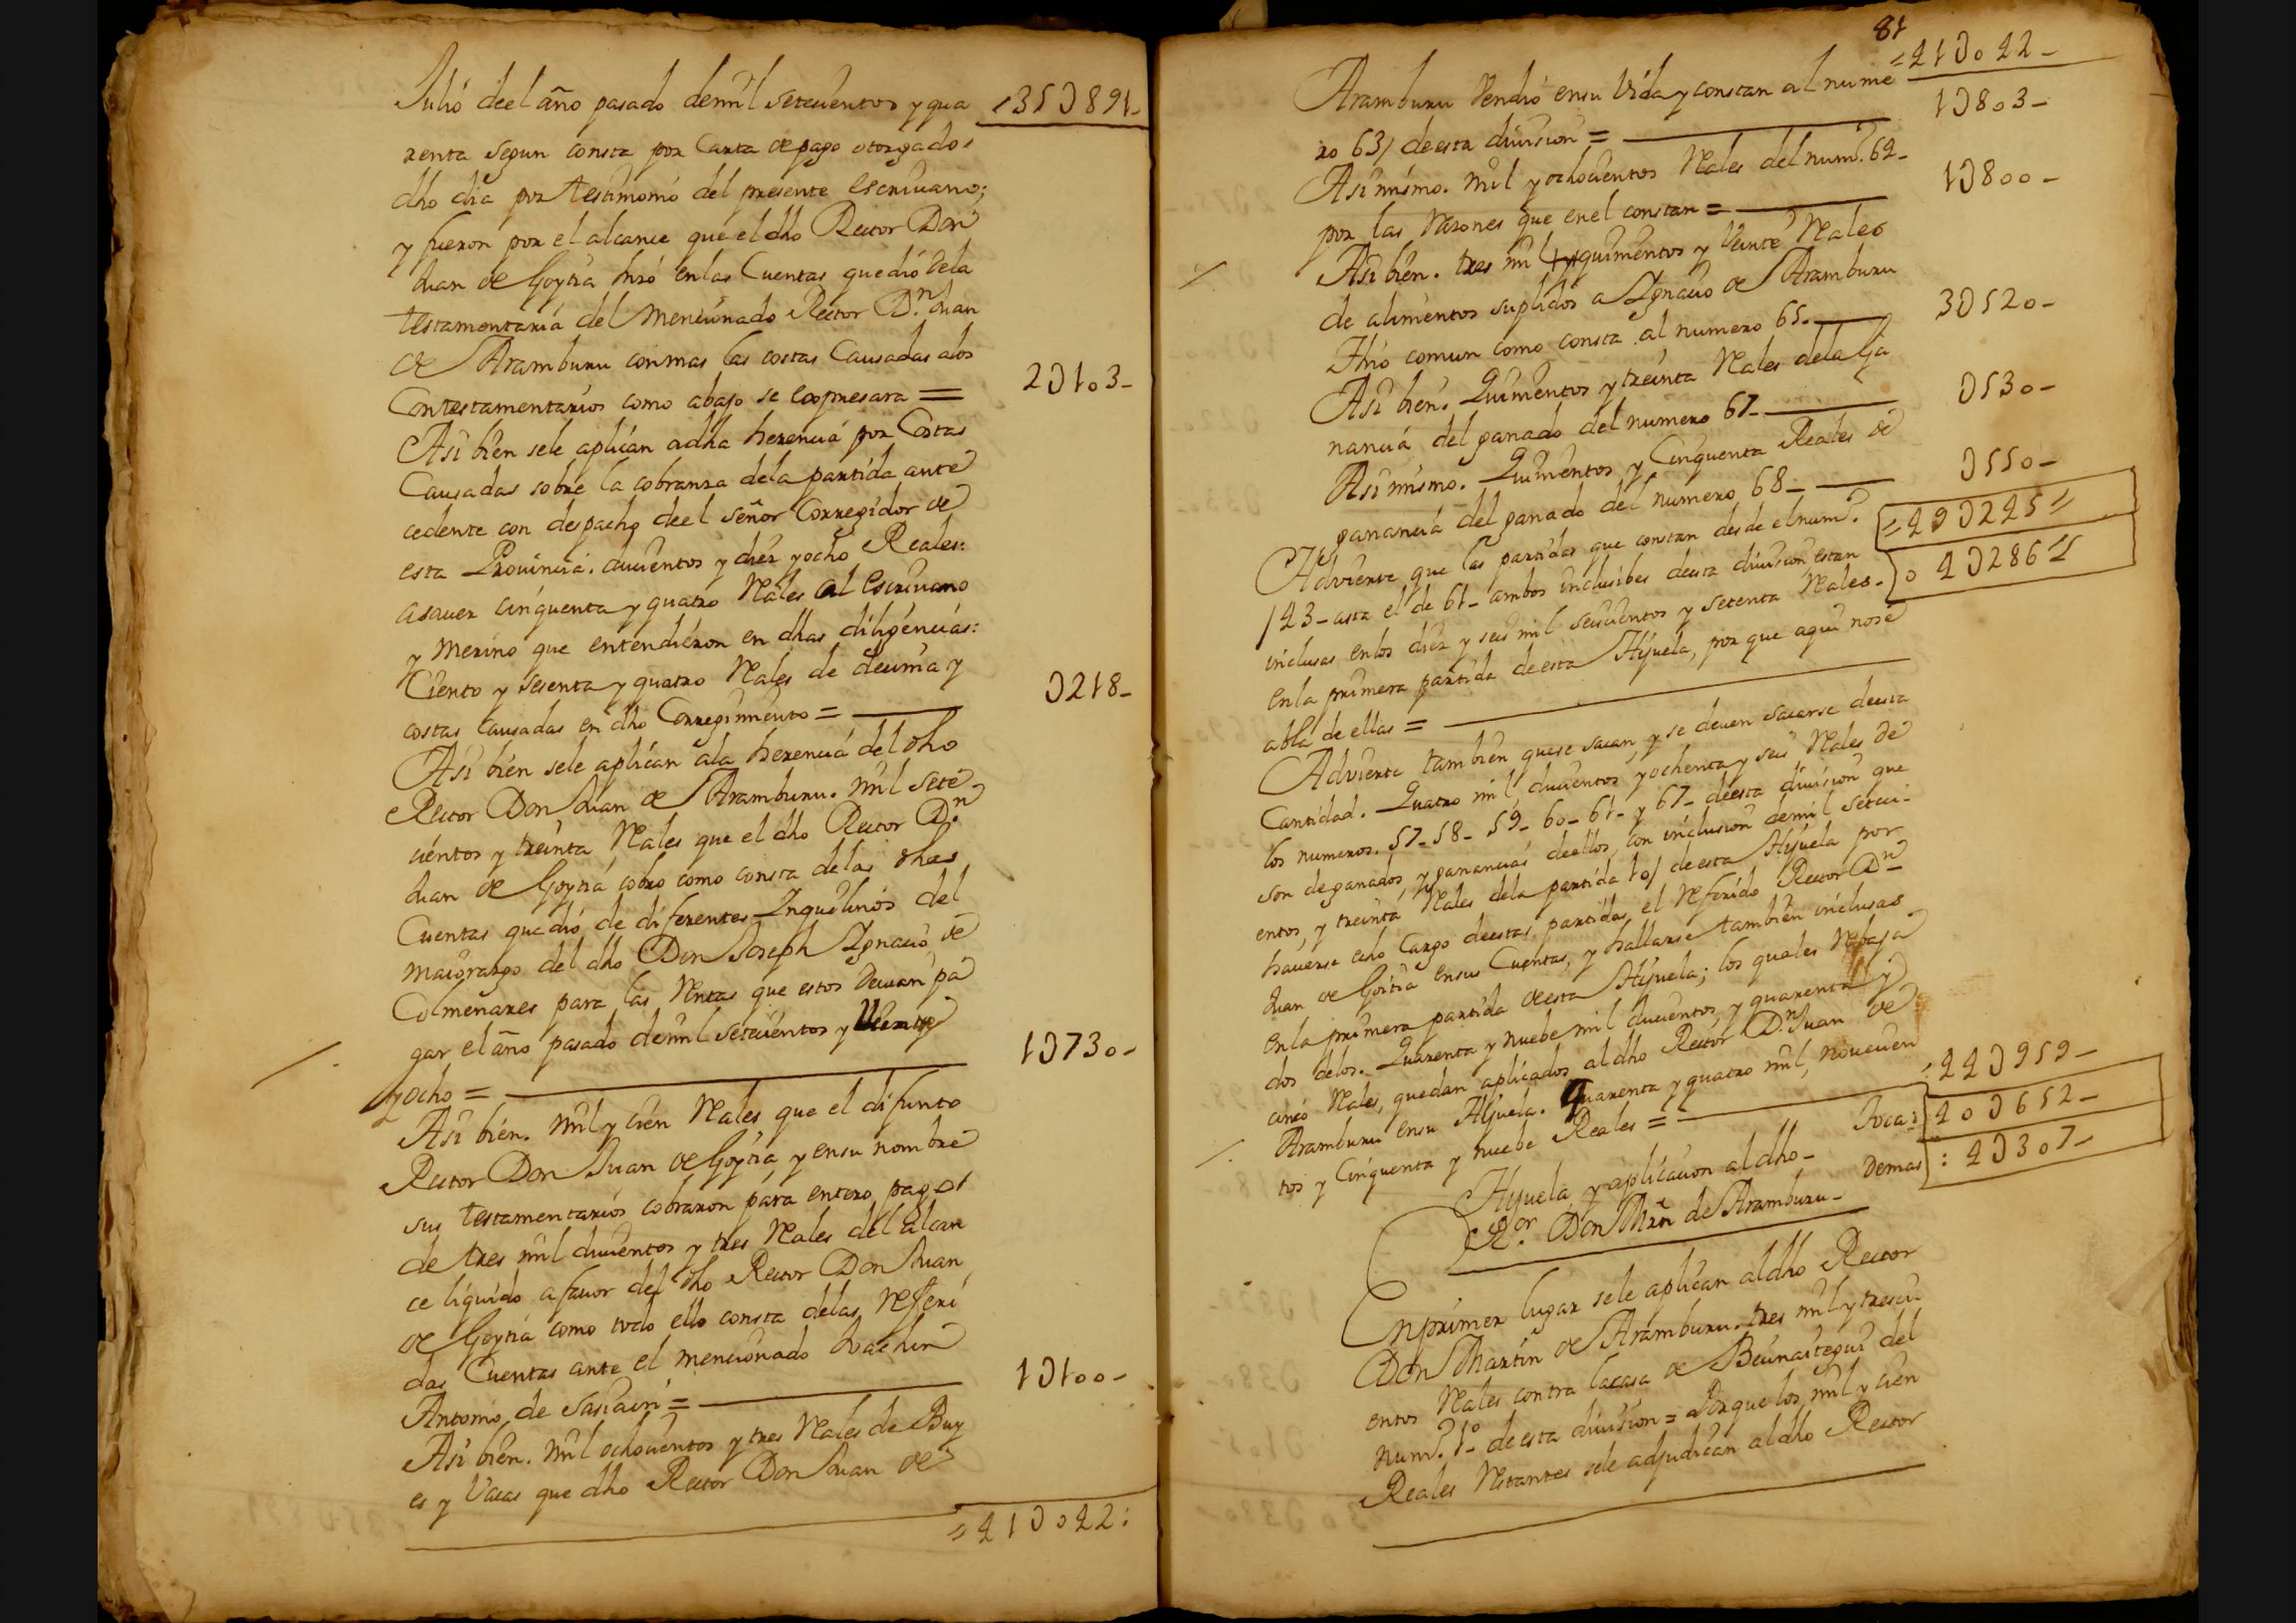 Julio deel año pasado demil setecientos y qua 35U891-
renta segun consta por Carta de pago otorgado
dho dia por testimonio del presente Escrivano;
y fueron por el alcance que el dho Rector Don
Juan de Goytia hizo en las Cuentas que dio dela
testamentaria del Mencionado Rector D.n Juan
de Aramburu con mas las costas Causadas alos
Contestamentarios como abajo se expresara = 2U103-
Asi bien sele aplican adha herencia por Costas
Causadas sobre la cobranza dela partida ante
cedente con despacho deel señor Corregidor de
esta Provincia. ducientos y diez y ocho Reales:
asaver cinquenta y quatro Rales al Escrivano
y Merino que entendieron en dhas diligencias:
Ciento y sesenta y quatro Rales de decima y
costas causadas en dho Corregimiento = U218-
Asi bien sele aplican ala herencia del dho
Rector Don Juan de Aramburu. mil sete
cientos y treinta Rales que el dho Rector D.n
Juan de Goytia cobro como consta de las dhas
Cuentas que dio de diferentes Inquilinos del
maiorazgo del dho Don Joseph Ignacio de
Colmenares para las Rentas que estos devian pa
gar el año pasado demil setecientos y Veinte
y ocho = 1U730-
Asi bien. mil y cien Rales que el difunto
Rector Don Juan de Goytia y en su nombre
sus testamentarios cobraron para entero pago
de tres mil ducientos y tres Rales del alcan
ce liquido a favor del dho Rector Don Juan
de Goytia como todo ello consta delas Referi
das Cuentas ante el mencionado Joachin
Antonio de Sasiain = 1U100-
Asi bien. mil ochocientos y tres Rales de Buy
es y Vacas que dho Rector Don Juan de
= 41U042:
81
Aramburu Vendio en su Vida y constan al nume = 41U042-
ro 63/ de esta division = 1U803-
Asi mismo. mil y ochocientos Rales del num.o 64-
por las Razones que en el constan = 1U800-
Asi bien. tres mil quinientos y Veinte Rales
de alimentos suplidos a Ignacio de Aramburu
Thio comun como consta al numero 65. 3U520-
Asi bien. Quinientos y treinta Rales dela Ga
nancia del ganado del numero 67- U530-
Asi mismo. Quinientos y Cinquenta Reales de
ganancia del ganado del numero 68- U550-
Advierte que las partidas que constan desde el num.o = 49U245=
43- asta el de 61- ambos inclusibes deesta division estan 4U286
inclusas en los diez y seis mil seiscientos y setenta Rales-
en la primera partida de esta Hijuela, por que aqui nose
abla de ellas =
Advierte tambien que se sacan, y se deven sacarse deesta
Cantidad. Quatro mil, ducientos y ochenta y seis Rales de
los numeros. 57- 58- 59- 60- 61- y 67- deesta division que
son de ganados, y ganancias deellos, con inclusion demil seteci-
entos, y treinta Rales dela partida 10/ de esta Hijuela por
haverse echo Cargo deestas partidas, el Referido Rector D.n
Juan de Goitia en sus Cuentas, y hallarse tambien inclusas
en la primera partida de esta Hijuela; los quales Rebaja
dos delos. Quarenta y nuebe mil ducientos, y quarenta y
cinco Rales, quedan aplicados al dho Rector D.n Juan de
Aramburu en su Hijuela. Quarenta y quatro mil, novecien
tos y Cinquenta y nuebe Reales = : 44U959-
Toca: 40U652-
Demas : 4U307-
Hijuela y aplicacion al dho-
R.or Don Mrn de Aramburu-
En primer lugar sele aplican al dho Rector
Don Martin de Aramburu. tres mil y tresci-
entos Rales contra la casa de Beinaitegui del
num.o 1.o deesta division = Porque los mil y cien
Reales Restantes sele adjudican al dho Rector